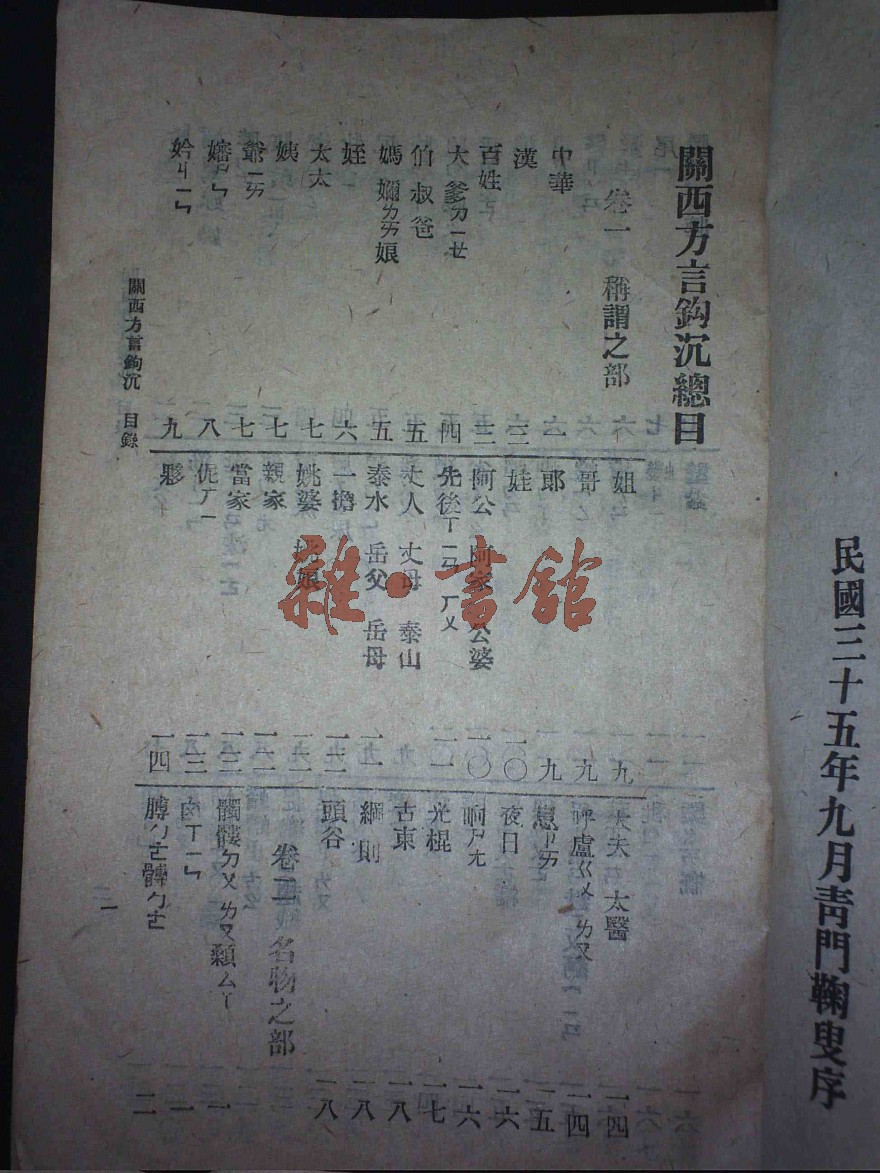 民國三十五年九月靑門鞠叟序
關西方言鈎沉總目
卷一 稱謂之部
中華 一
漢 三
百姓 三
大 爹ㄉㄧㄝ 四
伯 叔 爸 五
媽 嬭ㄌㄞ娘 五
姪 六
太太 七
姨 七
爺ㄧㄞ 七
嬸ㄕㄣ 八
妗ㄐㄧㄣ 九
姐 九
哥 九
郎 九
娃 一〇
阿公 阿家 公婆 一〇
先後ㄒㄧㄢ ㄏㄨ
丈人 丈母 泰山
泰水 岳父 岳母
一擔
姚婆 姚娘
親家
當家
伲ㄏㄧ 一三
夥 一四
大夫 太醫 一四
呼盧ㄍㄨ ㄌㄡ 一四
崽ㄗㄞ 一五
夜日 一六
晌ㄕㄤ 一六
光棍 一七
古東 一八
綱則 一八
頭谷 一八
卷二 名物之部
髑髏ㄉㄨ ㄌㄡ顙ㄙㄚ 一
囟ㄒㄧㄣ 一
膊ㄅㄛ髆ㄅㄛ 二
關西方言鉤沉 目錄
一
雜·書館